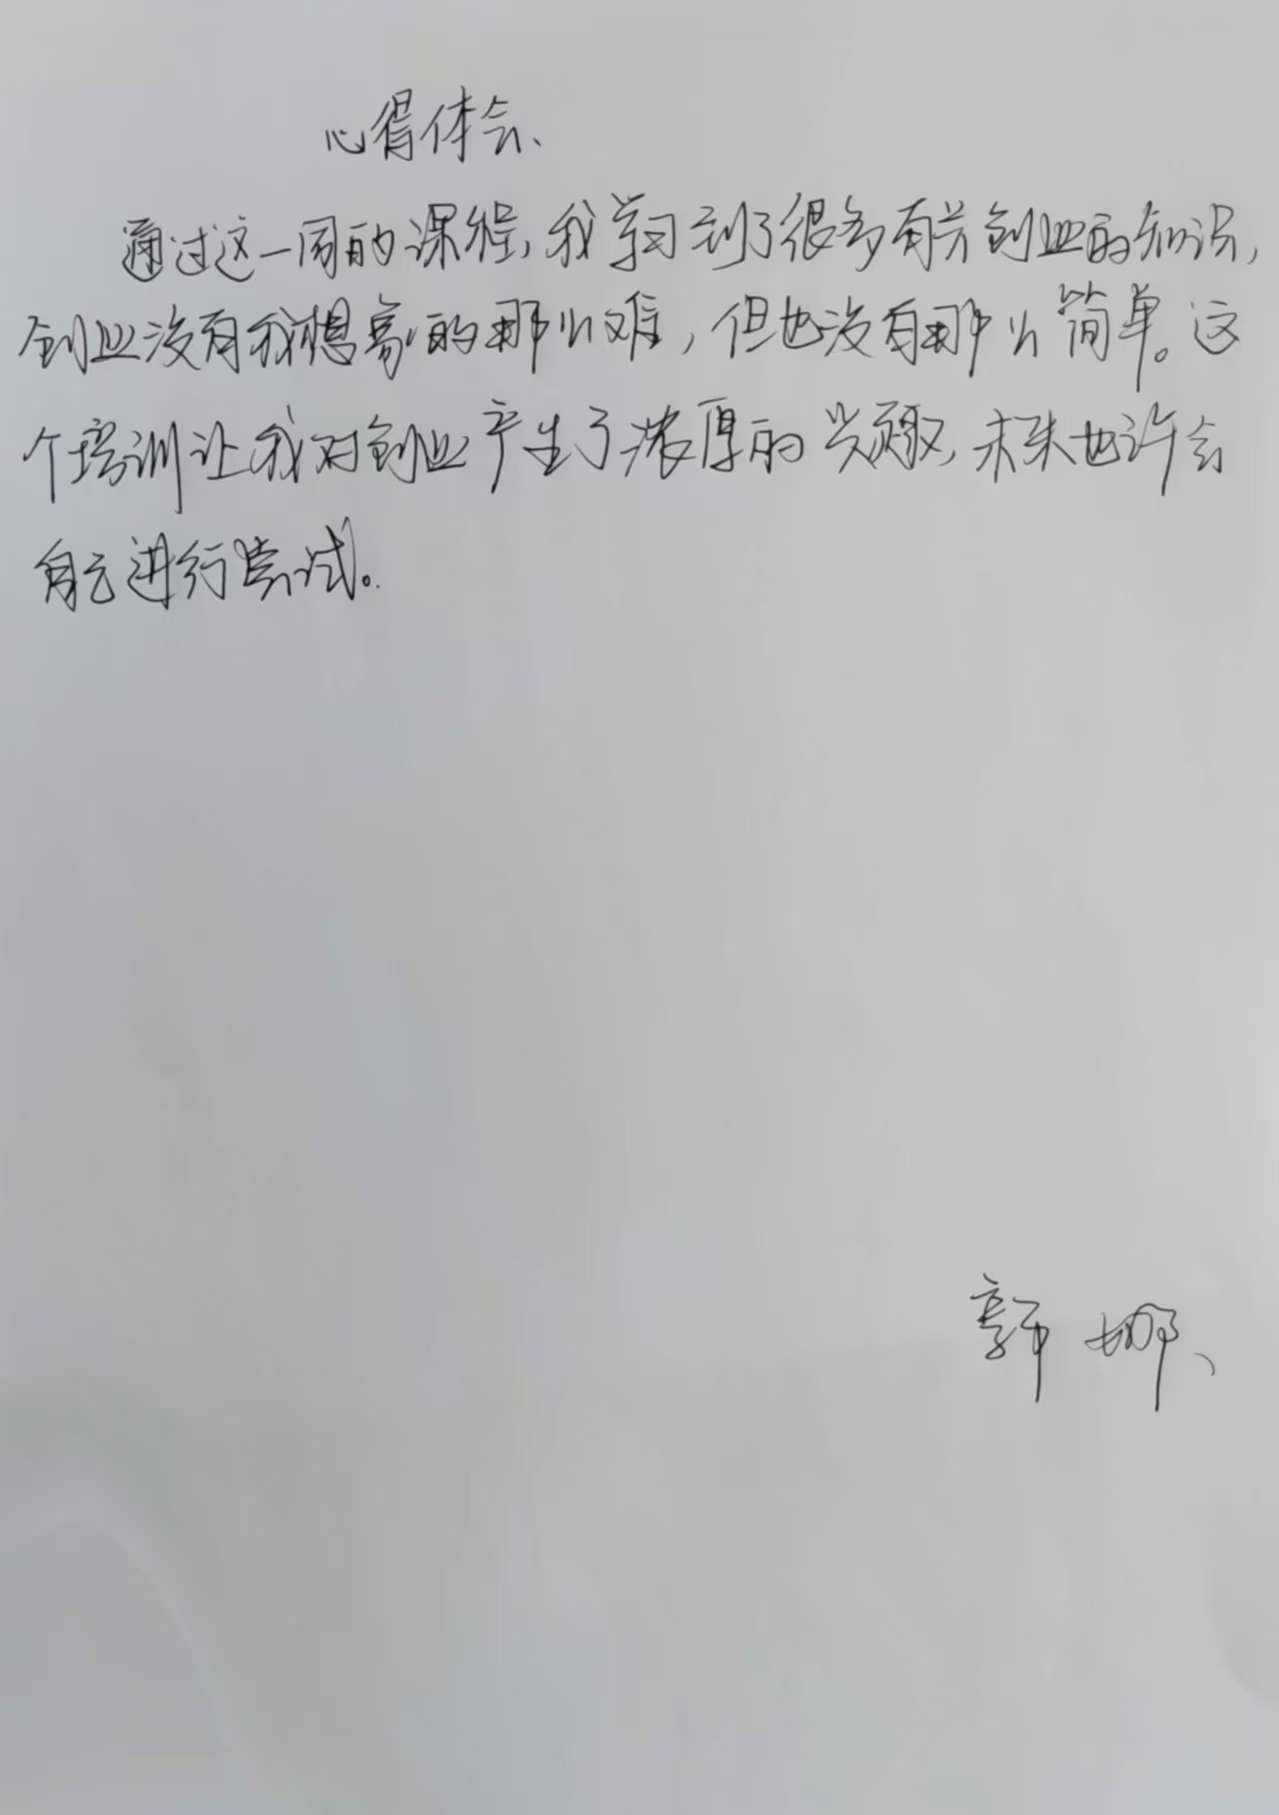 心得体会、
通过这一周的课程,我学习到了很多有关创业的知识,
创业没有我想象的那么难,但也没有那么简单。这
个培训让我对创业产生了浓厚的兴趣,未来也许会
自己进行尝试。
郭娜、